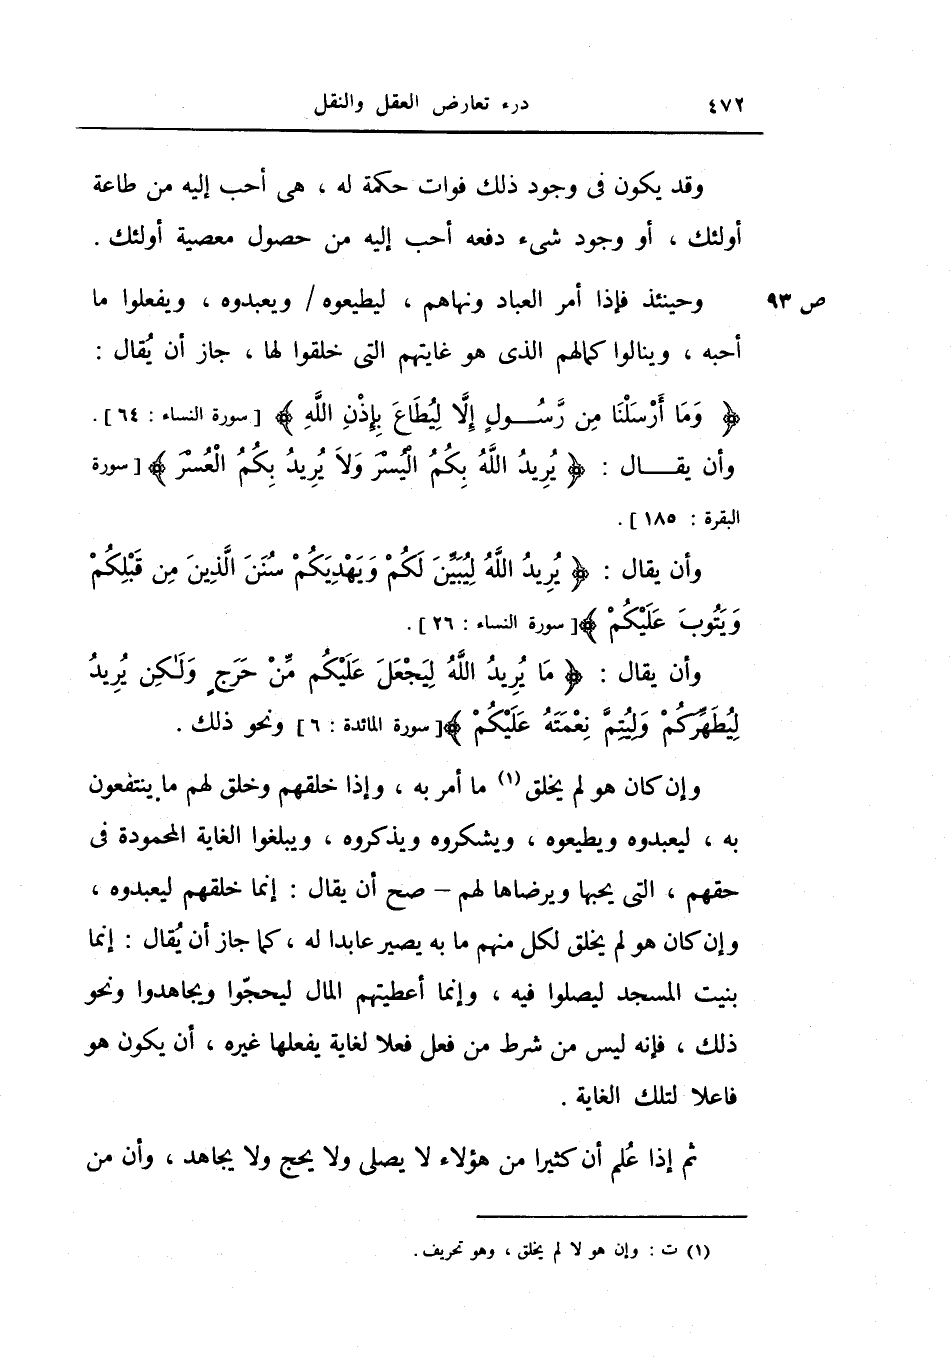 ٤٧٢ درء تعارض العقل والنقل
وقد يكون فى وجود ذلك فوات حكمة له ، هى أحب إليه من طاعة
أولئك ، أو وجود شىء دفعه أحب إليه من حصول معصية أولئك .
ص ٩٣ وحينئذ فإذا أمر العباد ونهاهم ، ليطيعوه / ويعبدوه ، ويفعلوا ما
أحبه ، وينالوا كمالهم الذى هو غايتهم التى خلقوا لها ، جاز أن يُقال :
﴿ وَمَا أَرْسَلْنَا مِن رَّسُــولٍ إِلَّا لِيُطَاعَ بِإِذْنِ اللَّهِ ﴾ [ سورة النساء : ٦٤ ] .
وأن يقــــال : ﴿ يُرِيدُ اللَّهُ بِكُمُ الْيُسْرَ وَلاَ يُرِيدُ بِكُمُ الْعُسْرَ ﴾ [ سورة
البقرة : ١٨٥ ] .
وأن يقال : ﴿ يُرِيدُ اللَّهُ لِيُبَيِّنَ لَكُمْ وَيَهْدِيَكُمْ سُنَنَ الَّذِينَ مِن قَبْلِكُمْ
وَيَتُوبَ عَلَيْكُمْ ﴾ [ سورة النساء : ٢٦ ] .
وأن يقال : ﴿ مَا يُرِيدُ اللَّهُ لِيَجْعَلَ عَلَيْكُم مِّنْ حَرَجٍ وَلَٰكِن يُرِيدُ
لِيُطَهِّرَكُمْ وَلِيُتِمَّ نِعْمَتَهُ عَلَيْكُمْ ﴾ [ سورة المائدة : ٦ ] ونحو ذلك .
وإن كان هو لم يخلق (١) ما أمر به ، وإذا خلقهم وخلق لهم ما ينتفعون
به ، ليعبدوه ويطيعوه ، ويشكروه ويذكروه ، ويبلغوا الغاية المحمودة فى
حقهم ، التى يحبها ويرضاها لهم – صح أن يقال : إنما خلقهم ليعبدوه ،
وإن كان هو لم يخلق لكل منهم ما به يصير عابدا له ، كما جاز أن يُقال : إنما
بنيت المسجد ليصلوا فيه ، وإنما أعطيتهم المال ليحجّوا ويجاهدوا ونحو
ذلك ، فإنه ليس من شرط من فعل فعلا لغاية يفعلها غيره ، أن يكون هو
فاعلا لتلك الغاية .
ثم إذا عُلم أن كثيرا من هؤلاء لا يصلى ولا يحج ولا يجاهد ، وأن من
(١) ت : وإن هو لا لم يخلق ، وهو تحريف .